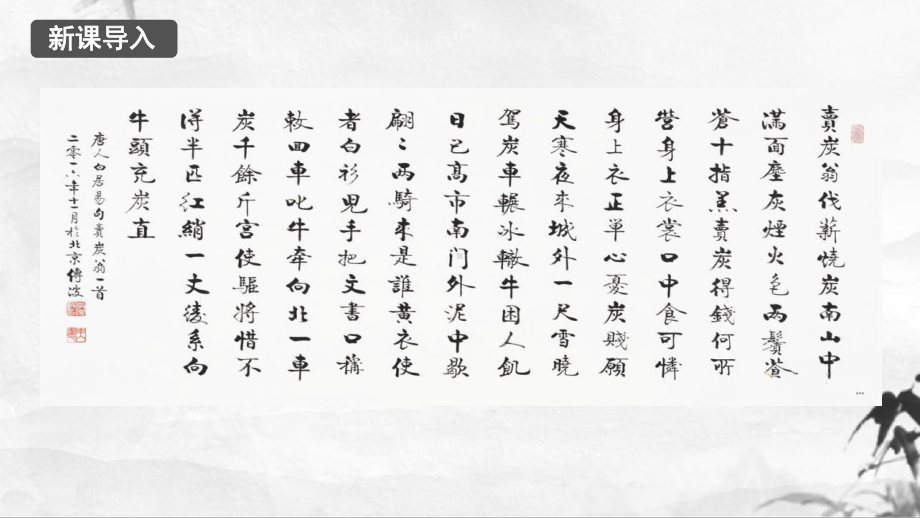 新课导入
賣炭翁伐薪燒炭南山中
滿面塵灰煙火色兩鬢蒼
蒼十指黑賣炭得錢何所
營身上衣裳口中食可憐
身上衣正单心憂炭賤願
天寒夜來城外一尺雪曉
駕炭車輾冰轍牛困人飢
日已高市南门外泥中歇
翩〻两騎來是誰黄衣使
者白衫兒手把文書口稱
敕回車叱牛牽向北一車
炭千餘斤宫使驅將惜不
得半匹红綃一丈綾系向
牛頭充炭直
唐人白居易句賣炭翁一首
二零一六年十一月於北京傅波